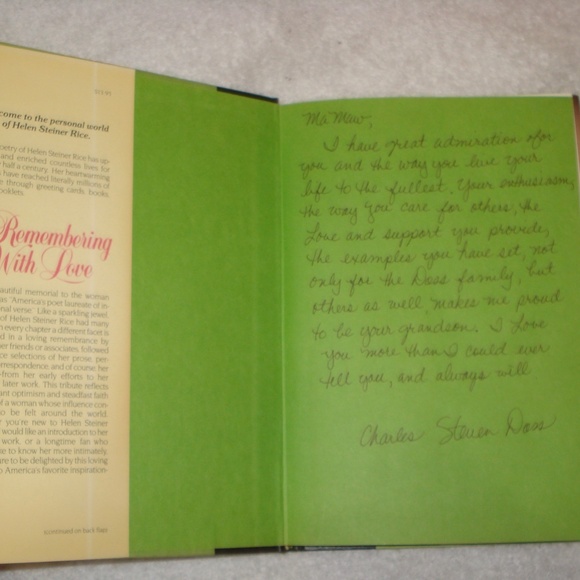 $12.95
come to the personal world
of Helen Steiner Rice.
oetry of Helen Steiner Rice has up-
and enriched countless lives for
half a century. Her heartwarming
have reached literally millions of
through greeting cards, books,
ooklets.
Remembering
With Love
autiful memorial to the woman
as "America's poet laureate of in-
onal verse." Like a sparkling jewel,
of Helen Steiner Rice had many
n every chapter a different facet is
d in a loving remembrance by
er friends or associates, followed
ce selections of her prose, per-
orrespondence, and of course, her
from her early efforts to her
later work. This tribute reflects
ant optimism and steadfast faith
of a woman whose influence con-
o be felt around the world.
r you're new to Helen Steiner
would like an introduction to her
work, or a longtime fan who
e to know her more intimately,
are to be delighted by this loving
o America's favorite inspiration-
(continued on back flap)
Ma Maw,
I have great admiration ofor
you and the way you live your
life to the fullest. Your enthusiasm,
the way you care for others, the
Love and support you provide,
the examples you have set, not
only for the Doss family, but
others as well, makes me proud
to be your grandson. I Love
you more than I could ever
tell you, and always will
Charles Steven Doss